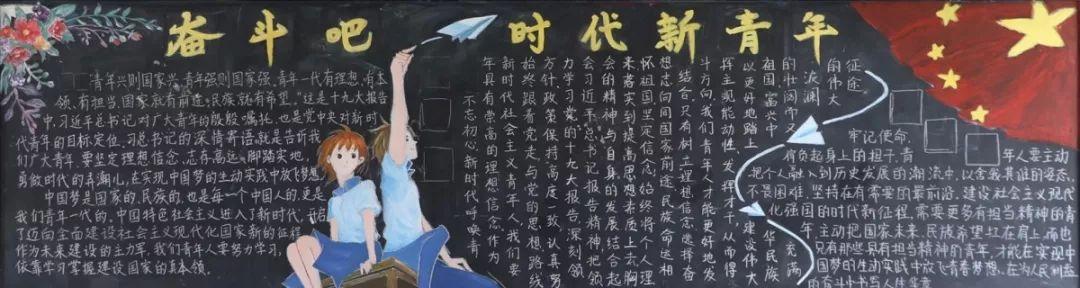 奋斗吧 时代新青年
"青年兴则国家兴,青年强则国家强。青年一代有理想、有本
领、有担当,国家就有前途,民族就有希望。"这是十九大报告
中,习近平总书记对广大青年的殷殷嘱托,也是党中央对新时
代青年的目标定位。习总书记的深情寄语就是告诉我
们广大青年要坚定理想信念,志存高远,脚踏实地,
勇做时代的弄潮儿,在实现中国梦的生动实践中放飞梦想
中国梦是国家的、民族的,也是每一个中国人的,更是
我们青年一代的。中国特色社会主义进入了新时代,开启
了迈向全面建设社会主义现代化国家新的征程
作为未来建设的主力军,我们青年人要努力学习,
依靠学习掌握建设国家的真本领。
不忘初心,新时代呼唤青
年具有崇高的理想信念,作为
新时代社会主义青年人,我们要
始终跟着党走,与党的思想路线
方针、政策保持高度一致,认真努
力学习党的十九大报告,深刻领
会习近平总书记报告精神,把领
会的精神与自身的发展结合起
来,落实到提高思想素质上去,胸
怀祖国,坚定信念,始终将个人理
想志向同国家前途、民族命运相
结合,只有树立理想信念,选择奋
斗方向,我们青年人才能更好地发
挥主观能动性,发挥才干,从而得
以更好地踏上建设伟大
祖国、复兴中华民族
的壮阔而又充满
波澜
的伟大
征途。
牢记使命,
肩负起身上的担子,青年人要主动
把个人融入到历史发展的潮流中,以舍我其谁的姿态,
不畏困难,坚持在有需要的最前沿,建设社会主义现代
化强国的时代新征程,需要更多有担当精神的青
年,主动把国家未来、民族希望扛在肩上,而也
只有那些具有担当精神的青年,才能在实现中
国梦的生动实践中放飞青春梦想,在为人民利益
的奋斗中书写人生华章